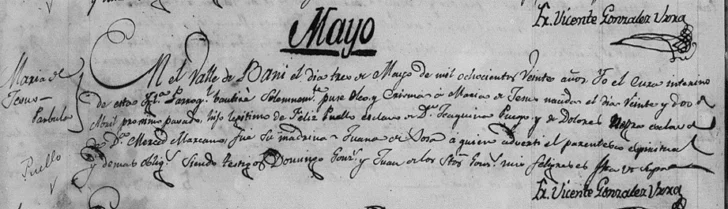 Fr. Vicente Gonzalez Urra
Mayo
Maria de
Jesus
Parbula
Puello
En el Valle de Bani el dia tres de Mayo de mil ochocientos Veinte años Yo el Cura interino
de esta Sta. Parroql. bautisé Solemnemte. puse Oleo y Crisma á Maria de Jesus nacida el dia Veinte y dos de
Abril proximo pasado, hija legitima de Feliz Puello esclavo de Dn. Puello y de Dolores Negra esclava
de Da. Merced Marcano, fue su madrina Juana de Sosa á quien adverti el parentesco espiritual
y demas obligs. Siendo testigos Domingo Gonz. y Juan de los Stos.
Fr. Vicente Gonzalez Urra